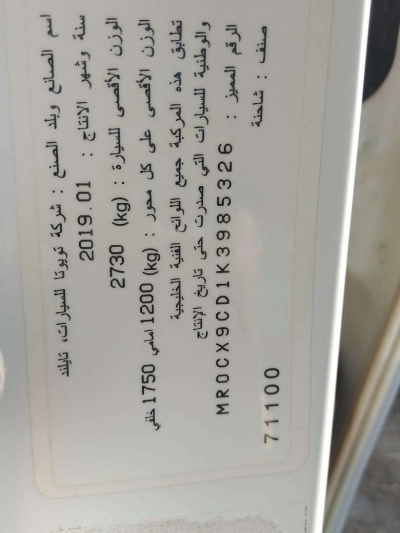 اسم الصانع وبلد الصنع : شركة تويوتا للسيارات، تايلند
سنة وشهر الانتاج : 2019.01
الوزن الأقصى للسيارة : (kg) 2730
الوزن الأقصى على كل محور : (kg) 1200 امامي 1750 خلفي
تطابق هذه المركبة جميع اللوائح الفنية الخليجية
والوطنية للسيارات التي صدرت حتى تاريخ الإنتاج
الرقم المميز : MR0CX9CD1K3985326
صنف : شاحنة
71100